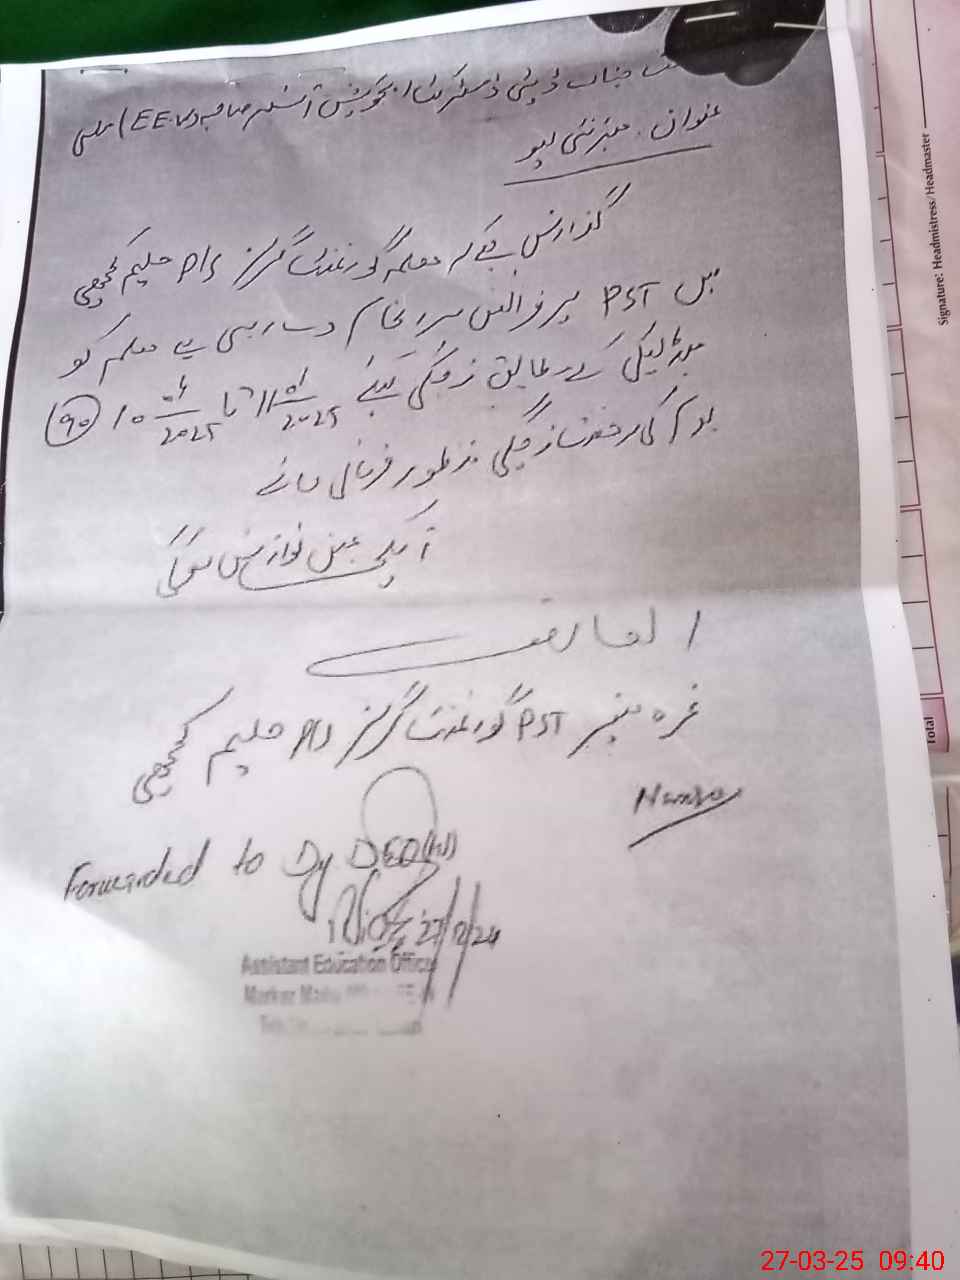 جناب ڈپٹی ڈسٹرکٹ ایجوکیشن آفیسر صاحبہ (EE-W) میلسی
عنوان: میٹرنٹی لیو
گذارش ہے کہ معلمہ گورنمنٹ گرلز P/S حلیم کھچی
میں PST پر فرائض سر انجام دے رہی ہے معلمہ کو
میڈیکل کے مطابق زچگی کیلئے 11 01/2025 تا 10 04/2025 (90)
یوم کی رخصت زچگی منظور فرمائی جائے
آپکی عین نوازش ہوگی
العارضہ
PST گورنمنٹ گرلز P/S حلیم کھچی
Forwarded to Dy DEO (W)
27/12/24
Assistant Education Officer
Markaz
Signature: Headmistress/Headmaster
Total
27-03-25 09:40